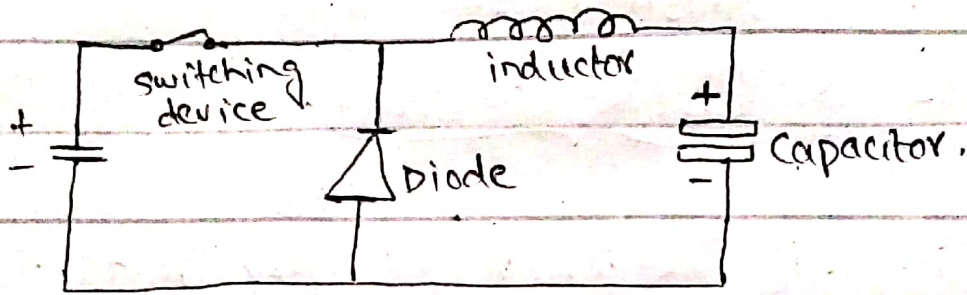 switching
device
inductor
+
-
Diode
+
-
Capacitor.